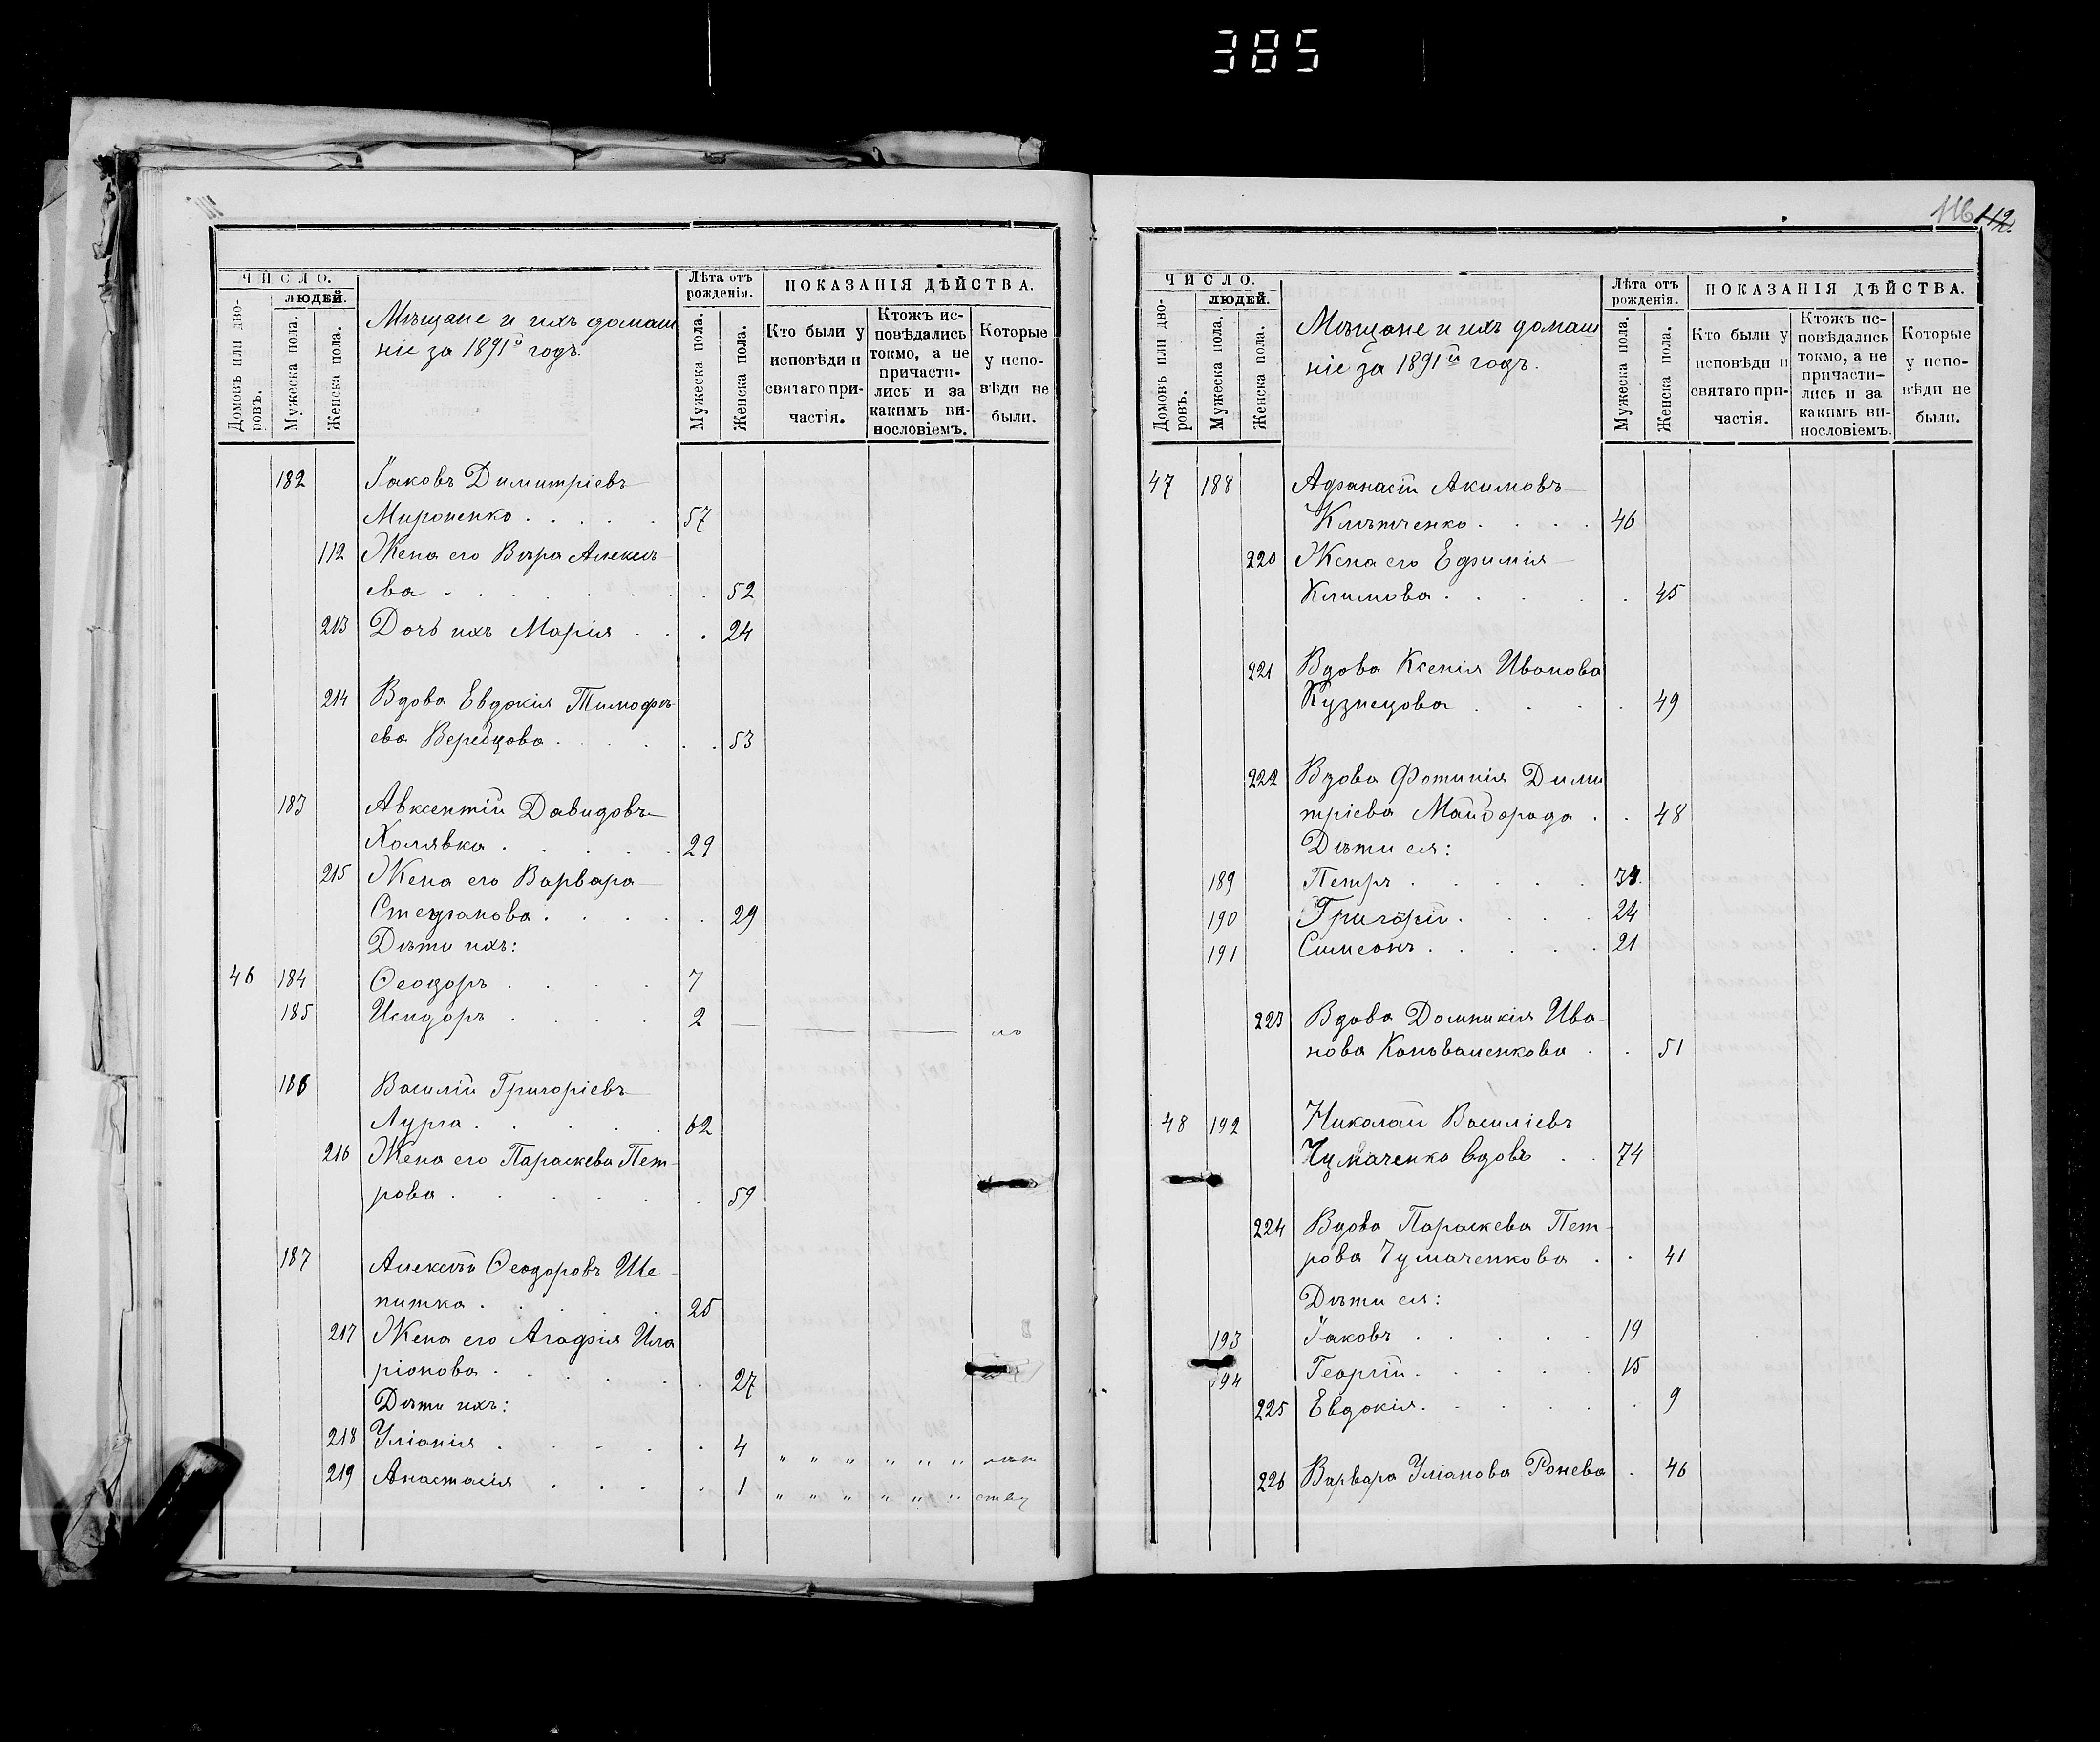 385
ЧИСЛО.
Домовъ или дворовъ.
ЛЮДЕЙ.
Мужеска пола.
Женска пола.
Мѣщане и ихъ домаш
ніе за 1891й годъ.
Лѣта отъ
рожденія.
Мужеска пола.
Женска пола.
ПОКАЗАНІЯ ДѢЙСТВА.
Кто были у
исповѣди и
святаго при-
частія.
Ктожъ ис-
повѣдались
токмо, а не
причасти-
лись и за
какимъ ви-
нословіемъ.
Которые
у испо-
вѣди не
были.
182 Іаковъ Димитріевъ
Мироненко . . . . . 57
112 Жена его Вѣра Алексѣ-
ева . . . . . 52
213 Дочь ихъ Марія . . . 24
214 Вдова Евдокія Тимофѣ-
ева Веребцова . . . . . 53
183 Авксентій Давидовъ
Холявка . . . . . 29
215 Жена его Варвара
Стефанова . . . . . 29
Дѣти ихъ:
46 184 Ѳеодоръ . . . . 7
185 Исидоръ . . . . 2
186 Василій Григоріевъ
Лурга . . . . . 62
216 Жена его Параскева Пет-
рова . . . . . 59
187 Алексѣй Ѳеодоровъ Ше-
питка . . . . . 25
217 Жена его Агафія Ила
ріонова . . . . . 27
Дѣти ихъ:
218 Уліанія . . . . . 4 " " " " " "
219 Анастасія . . . . . 1 " " " " " " ству
116 112
ЧИСЛО.
Домовъ или дворовъ.
ЛЮДЕЙ.
Мужеска пола.
Женска пола.
Мѣщане и ихъ домаш
ніе за 1891й годъ.
Лѣта отъ
рожденія.
Мужеска пола.
Женска пола.
ПОКАЗАНІЯ ДѢЙСТВА.
Кто были у
исповѣди и
святаго при-
частія.
Ктожъ ис-
повѣдались
токмо, а не
причасти-
лись и за
какимъ ви-
нословіемъ.
Которые
у испо-
вѣди не
были.
47 188 Афанасій Акимовъ
Клѣтченко . . . . 46
220 Жена его Ефимія
Климова . . . . . 45
221 Вдова Ксенія Иванова
Кузнецова . . . . 49
222 Вдова Фотинія Дими
тріева Майборода . . 48
Дѣти ея:
189 Петръ . . . . .
190 Григорій . . . . 24
191 Симеонъ . . . . . 21
223 Вдова Домникія Ива-
нова Коноваленкова . . 51
48 192 Николай Василіевъ
Чумаченко вдовъ . . 74
224 Вдова Параскева Пет-
рова Чумаченкова . . 41
Дѣти ея:
193 Іаковъ . . . . . 19
194 Георгій . . . . . 15
225 Евдокія . . . . . . 9
226 Варвара Уліанова Ронева . 46